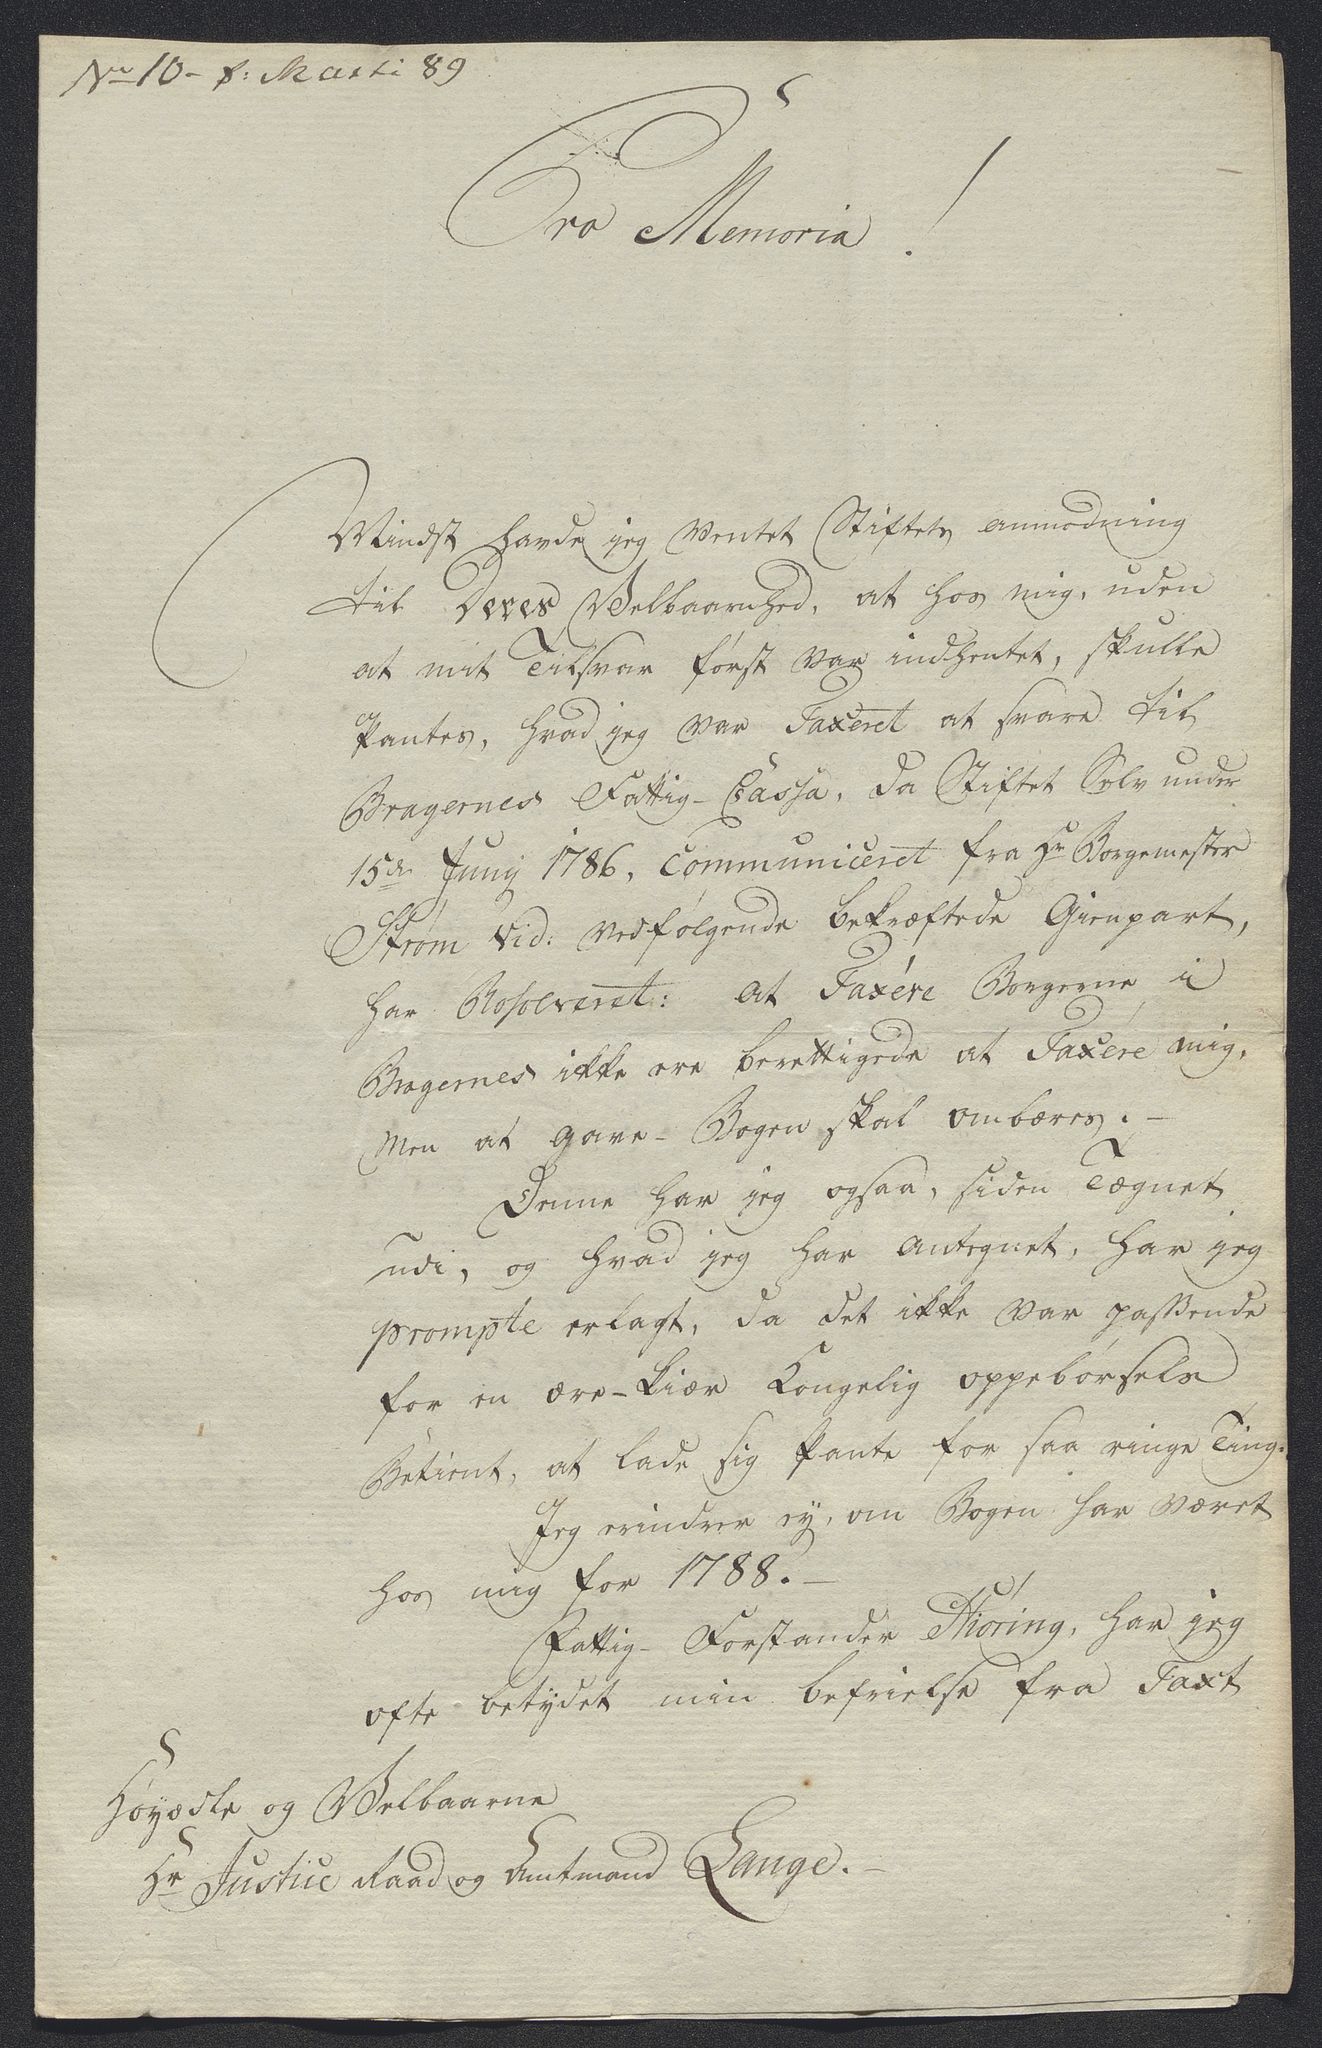 No 10 - p: Marti 89
Pro Memoria!
Mindst havde jeg ventet Stiftets anmodning
til Deres Velbaarnhed, at hos mig, uden
at mit Tilsvar først var indhentet, skulle
Pantes, hvad jeg var Taxeret at svare til
Bragernes Fattig-Cassa, da Stiftet Selv under
15de Junij 1786, Communiceret fra Hr Borgemester
Strøm vid: vedfølgende bekræftede Gienpart,
har Resolveret: at Taxére Borgerne i
Bragernes ikke ere berettigede at Taxére mig,
Men at Gave-Bogen skal ombæres. -
Denne har jeg ogsaa, siden Tegnet
udi, og hvad jeg har antegnet, har jeg
prompte erlagt, da det ikke var passende
for en ære-kiær Kongelig oppebørsels
Betient, at lade sig Pante for saa ringe Ting.
Jeg erindrer ey, om Bogen har været
hos mig for 1788. -
Fattig-Forstander Thiøring, har jeg
ofte betydet min befrielse fra Taxt
Høyædle og Velbaarne
Hr Justice Raad og Amtmand Lange. -